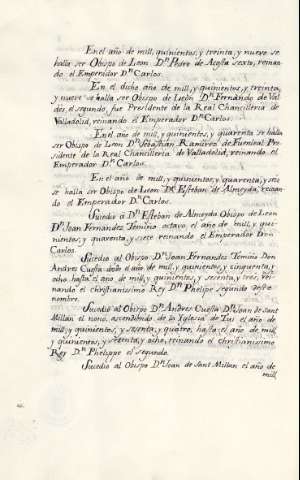 En el año de mill, quinientos, y treinta, y nueve se
halla ser Obispo de Leon Dn Pedro de Acosta sexto, reinan
do el Emperador Dn Carlos.
En el dicho año de mill, y quinientos, y treinta,
y nueve se halla ser Obispo de León Dn Fernando de Val
dés, el segundo, fue Presidente de la Real Chancilleria de
Valladolid, reinando el Emperador Dn Carlos.
En el año de mill, y quinientos, y quarenta se halla
ser Obispo de Leon Dn Sebastian Ramirez de Fuenleal Pre
sidente de la Real Chancilleria de Valladolid, reinando el
Emperador Dn Carlos.
En el año de mill, y quinientos, y quarenta, y seis
se halla ser Obispo de León Dn Esteban de Almeyda, reinan
do el Emperador Dn Carlos.
Sucedio á Dn Esteban de Almeyda Obispo de Leon
Dn Joan Fernandez Temiño octavo el año de mill, y qui
nientos, y quarenta, y siete reinando el Emperador Dn
Carlos
Sucedio al Obispo Dn Joan Fernandez Temiño Don
Andres Cuesta desde el año de mill, y quinientos, y cinquenta, y
ocho hasta el año de mill, y quinientos, y sesenta, y tres, rei
nando el christianissimo Rey Dn Phelipe segundo deste
nombre.
Sucedio al Obispo Dn Andres Cuesta Dn Joan de Sant
Millan el nono, ascendiendo de la Iglesia de Tui el año de
mill, y quinientos, y sesenta, y quatro, hasta el año de mill
y quinientos, y setenta, y ocho, reinando el christianissimo
Rey Dn Phelippe el segundo.
Sucedio al Obispo Dn Joan de Sant Millan el año de
mill